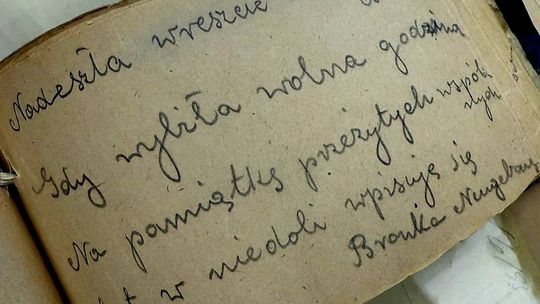 Nadeszła wreszcie
Gdy wybiła wolna godzina
Na pamiątkę przeżytych wspól
nych
w niedoli wpisuje się
Bronka